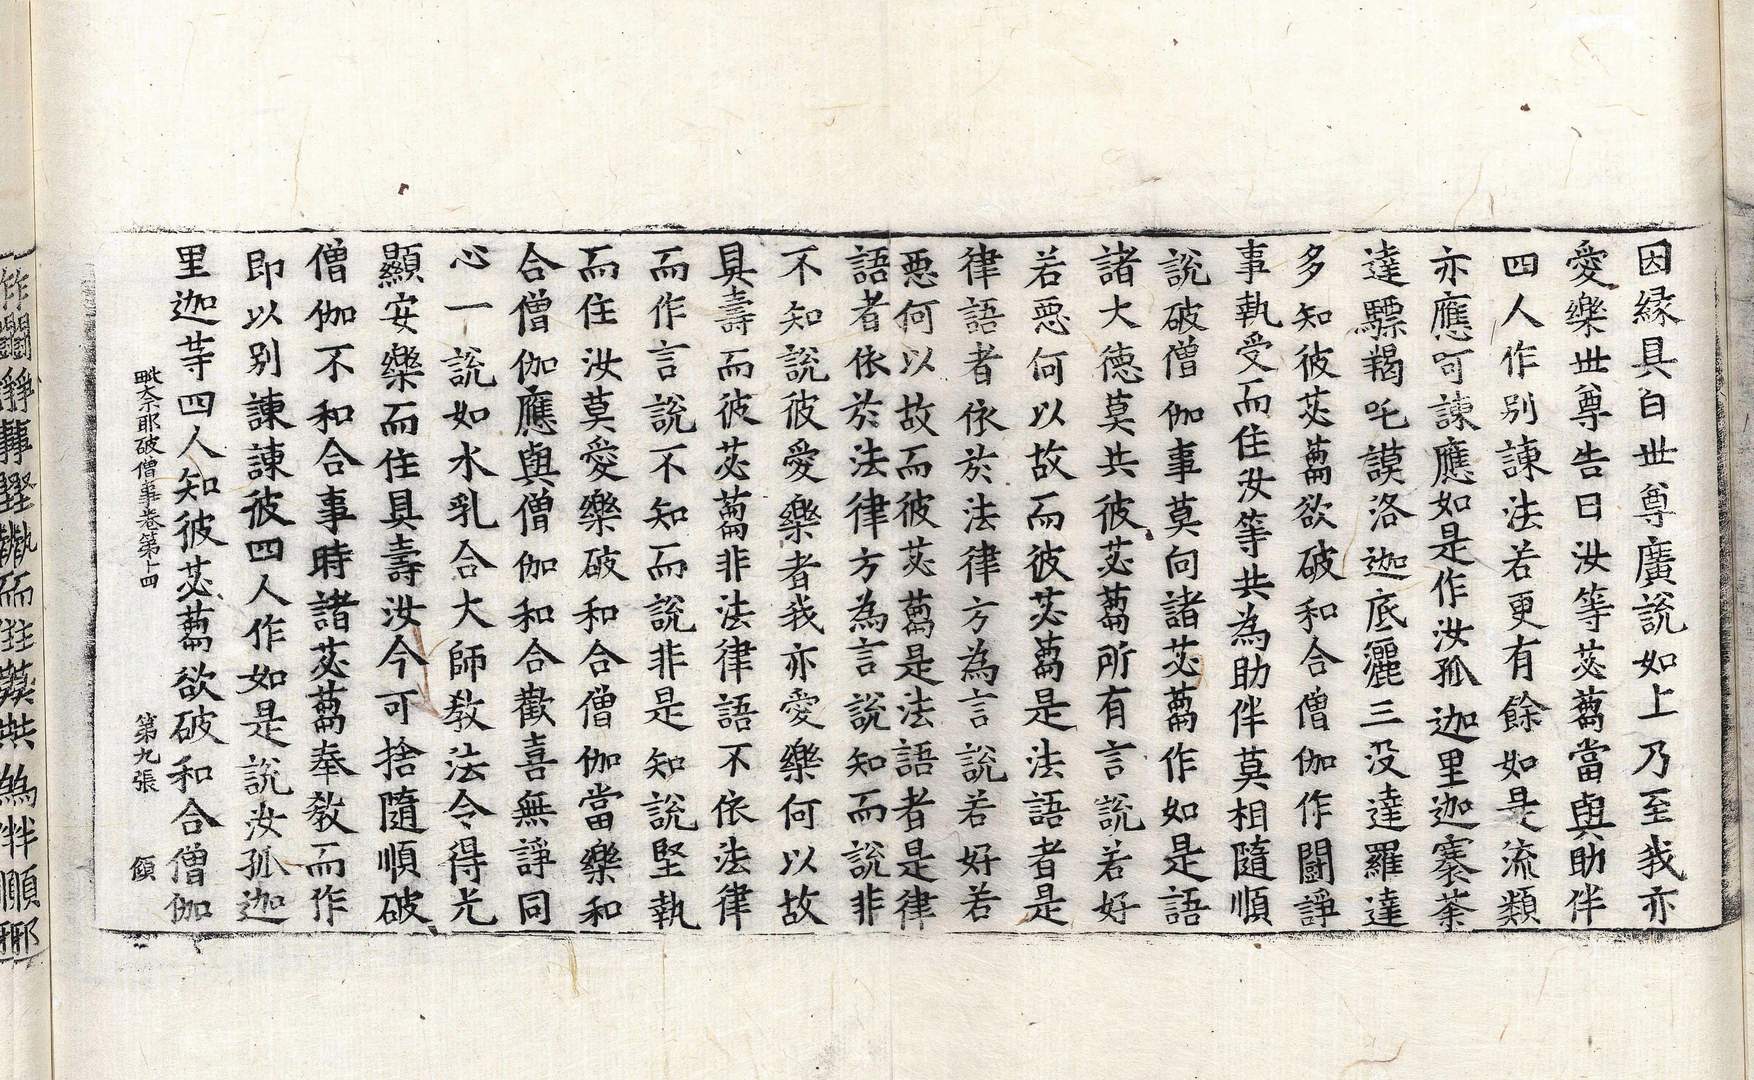 因縁具白世尊廣說如上乃至我亦
愛樂世尊告曰汝等苾蒭當與助伴
四人作別諫法若更有餘如是流類
亦應呵諫應如是作汝孤迦里迦褰荼
達驃羯吒謨洛迦底灑三没達羅達
多知彼苾蒭欲破和合僧伽作鬪諍
事執受而住汝等共為助伴莫相隨順
說破僧伽事莫向諸苾蒭作如是語
諸大德莫共彼苾蒭所有言說若好
若惡何以故而彼苾蒭是法語者是
律語者依於法律方為言說若好若
惡何以故而彼苾蒭是法語者是律
語者依於法律方為言說知而說非
不知說彼愛樂者我亦愛樂何以故
具壽而彼苾蒭非法律語不依法律
而作言說不知而說非是知說堅執
而住汝莫愛樂破和合僧伽當樂和
合僧伽應與僧伽和合歡喜無諍同
心一說如水乳合大師教法令得光
顯安樂而住具壽汝今可捨隨順破
僧伽不和合事時諸苾蒭奉教而作
即以別諫諫彼四人作如是說汝孤迦
里迦等四人知彼苾蒭欲破和合僧伽
毗奈耶破僧事卷第十四 第九張